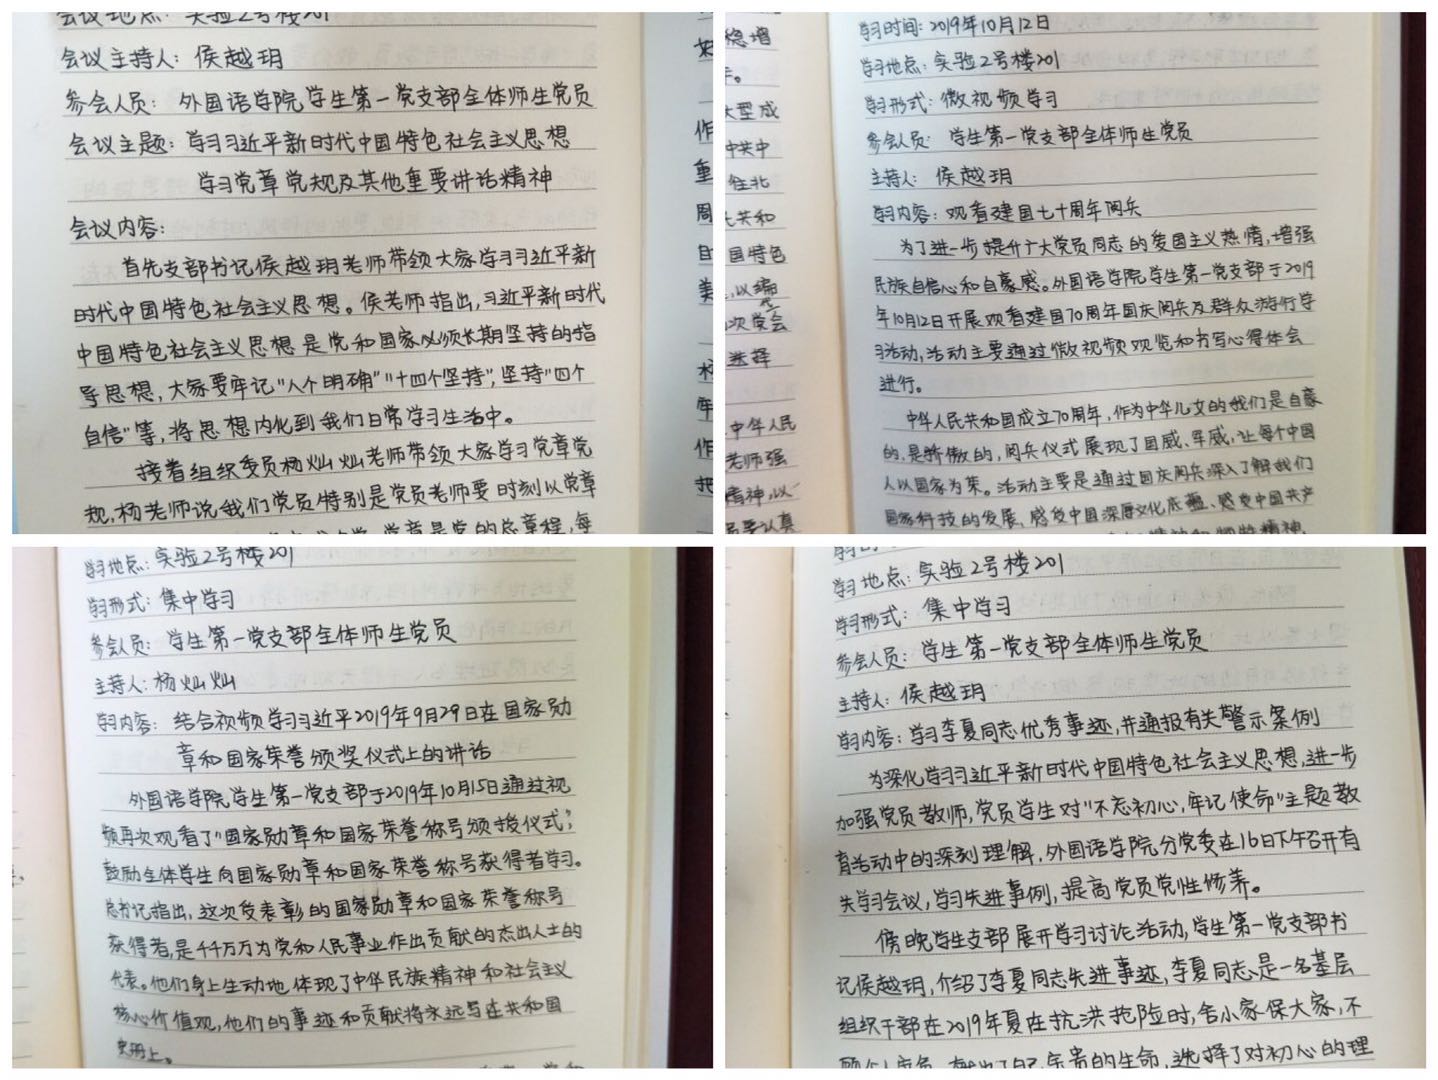 会议地点：实验2号楼201
会议主持人：侯越玥
参会人员：外国语学院学生第一党支部全体师生党员
会议主题：学习习近平新时代中国特色社会主义思想
学习党章党规及其他重要讲话精神
会议内容：
首先支部书记侯越玥老师带领大家学习习近平新
时代中国特色社会主义思想。侯老师指出，习近平新时代
中国特色社会主义思想是党和国家必须长期坚持的指
导思想，大家要牢记“八个明确”“十四个坚持”，坚持“四个
自信”等，将思想内化到我们日常学习生活中。
接着组织委员杨灿灿老师带领大家学习党章党
规，杨老师说我们党员特别是党员老师要时刻以党章
党章是党的总章程，每
稳增
大型成
中共中
往北
共和
国特色
，以编
次党会
选择
中华人民
老师强
精神，以
员要认真
学习时间：2019年10月12日
学习地点：实验2号楼201
学习形式：微视频学习
参会人员：学生第一党支部全体师生党员
主持人：侯越玥
学习内容：观看建国七十周年阅兵
为了进一步提升广大党员同志的爱国主义热情，增强
民族自信心和自豪感。外国语学院学生第一党支部于2019
年10月12日开展观看建国70周年国庆阅兵及群众游行学
习活动，活动主要通过微视频观览和书写心得体会
进行。
中华人民共和国成立70周年，作为中华儿女的我们是自豪
的，是骄傲的，阅兵仪式展现了国威、军威，让每个中国
人以国家为荣。活动主要是通过国庆阅兵深入了解我们
国家科技的发展、感受中国深厚文化底蕴、感受中国共产
学习地点：实验2号楼201
学习形式：集中学习
参会人员：学生第一党支部全体师生党员
主持人：杨灿灿
学习内容：结合视频学习习近平2019年9月29日在国家勋
章和国家荣誉颁奖仪式上的讲话
外国语学院学生第一党支部于2019年10月15日通过视
频再次观看了“国家勋章和国家荣誉称号颁授仪式”，
鼓励全体学生向国家勋章和国家荣誉称号获得者学习。
总书记指出，这次受表彰的国家勋章和国家荣誉称号
获得者，是千千万万为党和人民事业作出贡献的杰出人士的
代表。他们身上生动地体现了中华民族精神和社会主义
核心价值观，他们的事迹和贡献将永远写在共和国
史册上。
学习地点：实验2号楼201
学习形式：集中学习
参会人员：学生第一党支部全体师生党员
主持人：侯越玥
学习内容：学习李夏同志优秀事迹，并通报有关警示案例
为深化学习习近平新时代中国特色社会主义思想，进一步
加强党员教师，党员学生对“不忘初心，牢记使命”主题教
育活动中的深刻理解，外国语学院分党委在16日下午召开有
关学习会议，学习先进事例，提高党员党性修养。
傍晚学生支部展开学习讨论活动，学生第一党支部书
记侯越玥，介绍了李夏同志先进事迹，李夏同志是一名基层
组织干部在2019年夏在抗洪抢险时，舍小家保大家，不
顾个人安危，献出了自己宝贵的生命，选择了对初心的理